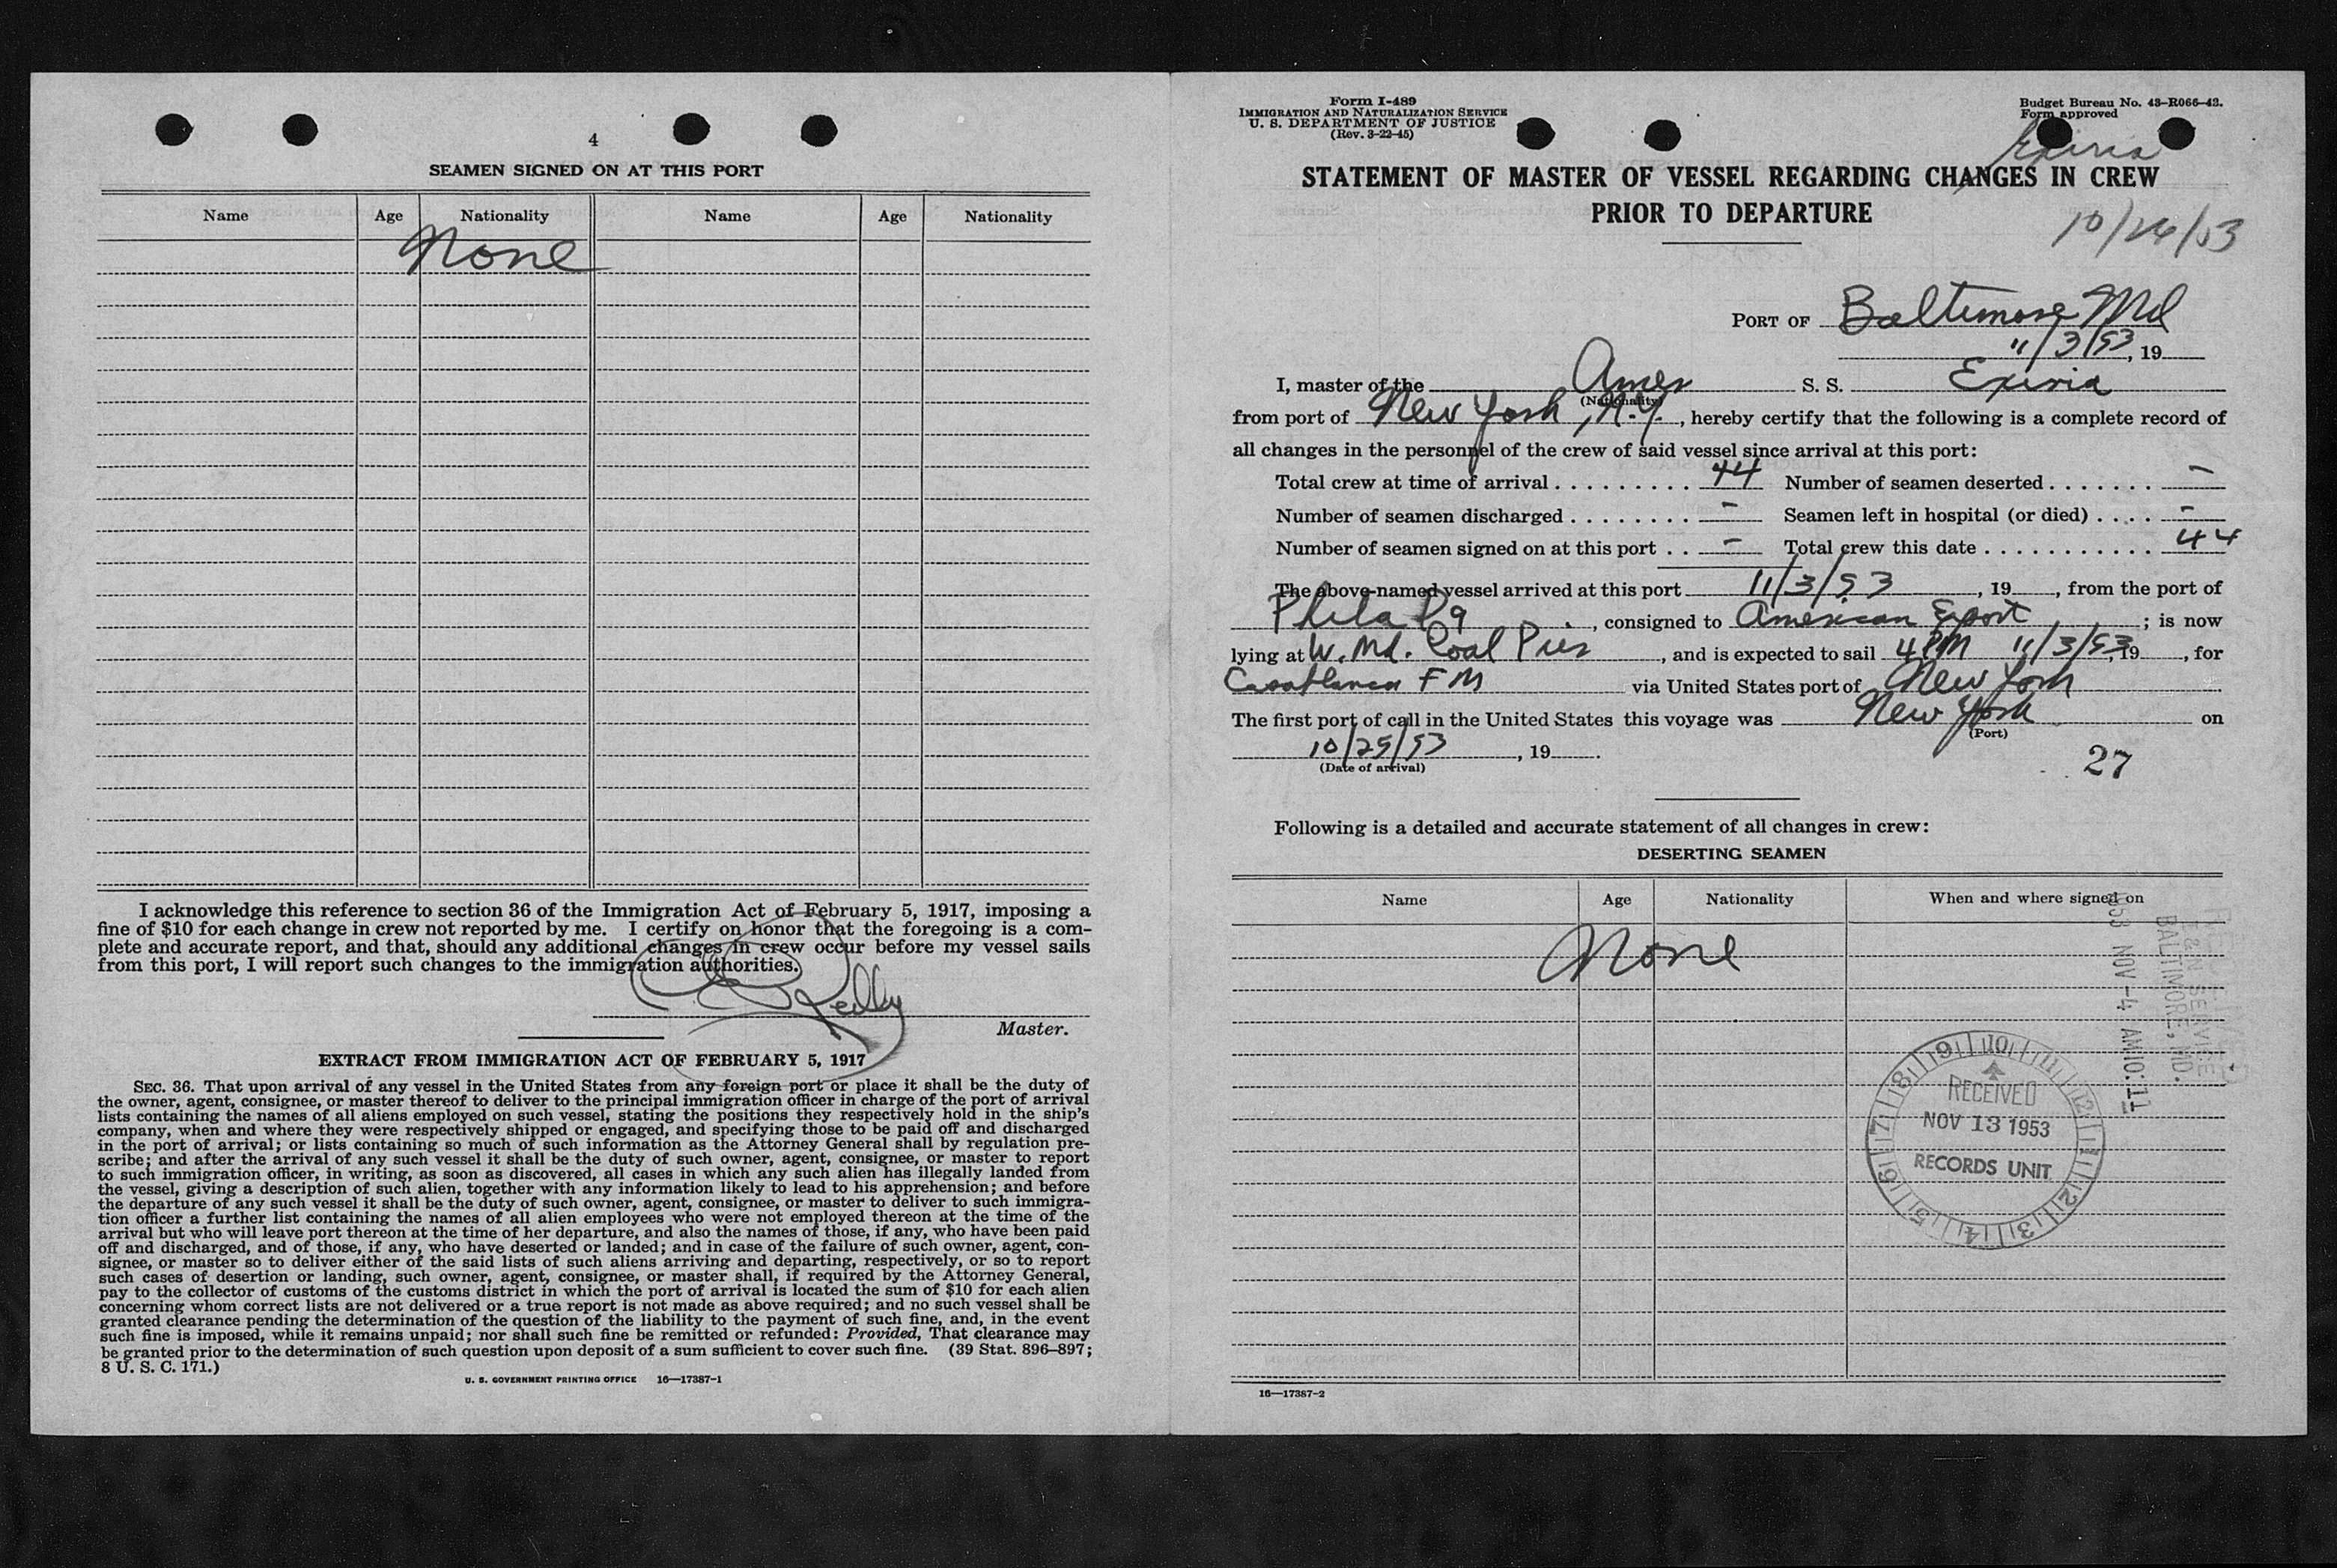 4
SEAMEN SIGNED ON AT THIS PORT
Name Age Nationality Name Age Nationality
None
I acknowledge this reference to section 36 of the Immigration Act of February 5, 1917, imposing a
fine of $10 for each change in crew not reported by me. I certify on honor that the foregoing is a com-
plete and accurate report, and that, should any additional changes in crew occur before my vessel sails
from this port, I will report such changes to the immigration authorities.
Reilly
Master.
EXTRACT FROM IMMIGRATION ACT OF FEBRUARY 5, 1917
SEC. 36. That upon arrival of any vessel in the United States from any foreign port or place it shall be the duty of
the owner, agent, consignee, or master thereof to deliver to the principal immigration officer in charge of the port of arrival
lists containing the names of all aliens employed on such vessel, stating the positions they respectively hold in the ship's
company, when and where they were respectively shipped or engaged, and specifying those to be paid off and discharged
in the port of arrival; or lists containing so much of such information as the Attorney General shall by regulation pre-
scribe; and after the arrival of any such vessel it shall be the duty of such owner, agent, consignee, or master to report
to such immigration officer, in writing, as soon as discovered, all cases in which any such alien has illegally landed from
the vessel, giving a description of such alien, together with any information likely to lead to his apprehension; and before
the departure of any such vessel it shall be the duty of such owner, agent, consignee, or master to deliver to such immigra-
tion officer a further list containing the names of all alien employees who were not employed thereon at the time of the
arrival but who will leave port thereon at the time of her departure, and also the names of those, if any, who have been paid
off and discharged, and of those, if any, who have deserted or landed; and in case of the failure of such owner, agent, con-
signee, or master so to deliver either of the said lists of such aliens arriving and departing, respectively, or so to report
such cases of desertion or landing, such owner, agent, consignee, or master shall, if required by the Attorney General,
pay to the collector of customs of the customs district in which the port of arrival is located the sum of $10 for each alien
concerning whom correct lists are not delivered or a true report is not made as above required; and no such vessel shall be
granted clearance pending the determination of the question of the liability to the payment of such fine, and, in the event
such fine is imposed, while it remains unpaid; nor shall such fine be remitted or refunded: Provided, That clearance may
be granted prior to the determination of such question upon deposit of a sum sufficient to cover such fine. (39 Stat. 896–897;
8 U. S. C. 171.)
U. S. GOVERNMENT PRINTING OFFICE 16—17387-1
Form I-489
IMMIGRATION AND NATURALIZATION SERVICE
U. S. DEPARTMENT OF JUSTICE
(Rev. 3-22-45)
Budget Bureau No. 43–R066–42.
Form approved
Exiria
STATEMENT OF MASTER OF VESSEL REGARDING CHANGES IN CREW
PRIOR TO DEPARTURE
10/26/53
PORT OF Baltimore Md
11/3/53, 19
I, master of the Amer S. S. Exiria
(Nationality)
from port of New York, N.Y., hereby certify that the following is a complete record of
all changes in the personnel of the crew of said vessel since arrival at this port:
Total crew at time of arrival 44 Number of seamen deserted –
Number of seamen discharged – Seamen left in hospital (or died) –
Number of seamen signed on at this port – Total crew this date 44
The above-named vessel arrived at this port 11/3/53, 19 , from the port of
Phila Pa, consigned to American Export; is now
lying at W. Md. Coal Pier, and is expected to sail 4 PM 11/3/53, 19 , for
Casablanca F M via United States port of New York
The first port of call in the United States this voyage was New York on
(Port)
10/25/53, 19 .
(Date of arrival)
27
Following is a detailed and accurate statement of all changes in crew:
DESERTING SEAMEN
Name Age Nationality When and where signed on
None
I&N SERVICE
BALTIMORE, MD.
1953 NOV -4 AM 10:11
RECEIVED
NOV 13 1953
RECORDS UNIT
16—17387-2